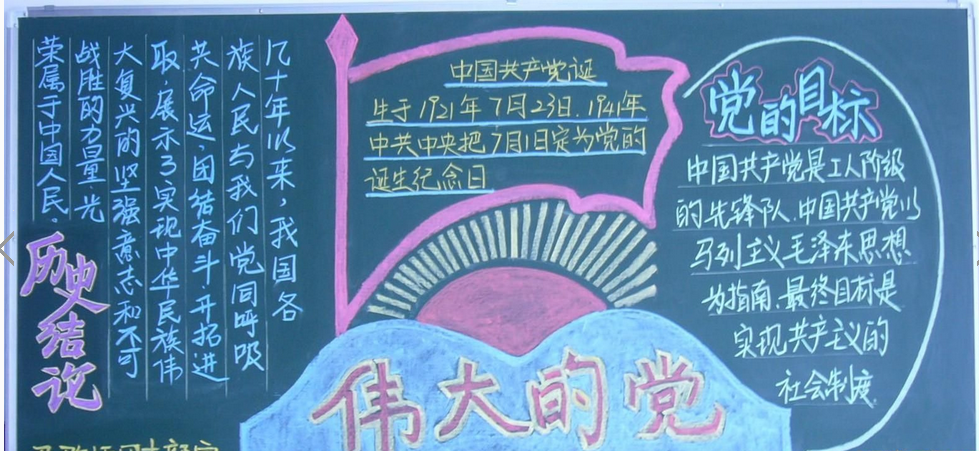 历史结论
几十年以来，我国各
族人民与我们党同呼吸
共命运，团结奋斗开拓进
取，展示了实现中华民族伟
大复兴的坚强意志和不可
战胜的力量。光
荣属于中国人民。
中国共产党诞
生于1921年7月23日.1941年
中共中央把7月1日定为党的
诞生纪念日
伟大的党
党的目标
中国共产党是工人阶级
的先锋队.中国共产党以
马列主义毛泽东思想
为指南.最终目标是
实现共产主义的
社会制度.